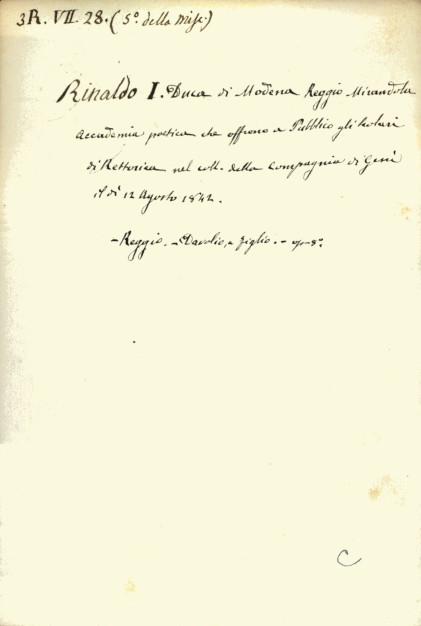 3R. VII. 28. (5º. della misc.)
Rinaldo I. Duca di Modena Reggio Mirandola
Accademia poetica che offrono a Pubblico gli scolari
di Rettorica nel coll. della Compagnia di Gesù
il dì 12 Agosto 1842.
- Reggio. - Davolio, e figlio. - op-8º.
C